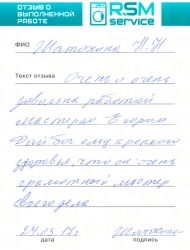 ОТЗЫВ О
ВЫПОЛНЕННОЙ
РАБОТЕ
RSM
service
ФИО Шатохина Н.Н
Текст отзыва Очень и очень
довольна работой
мастера Егором
Дай бог ему крепкого
здоровья, что он очень
грамотный мастер
своего дела
27.03.17г.
дата подпись